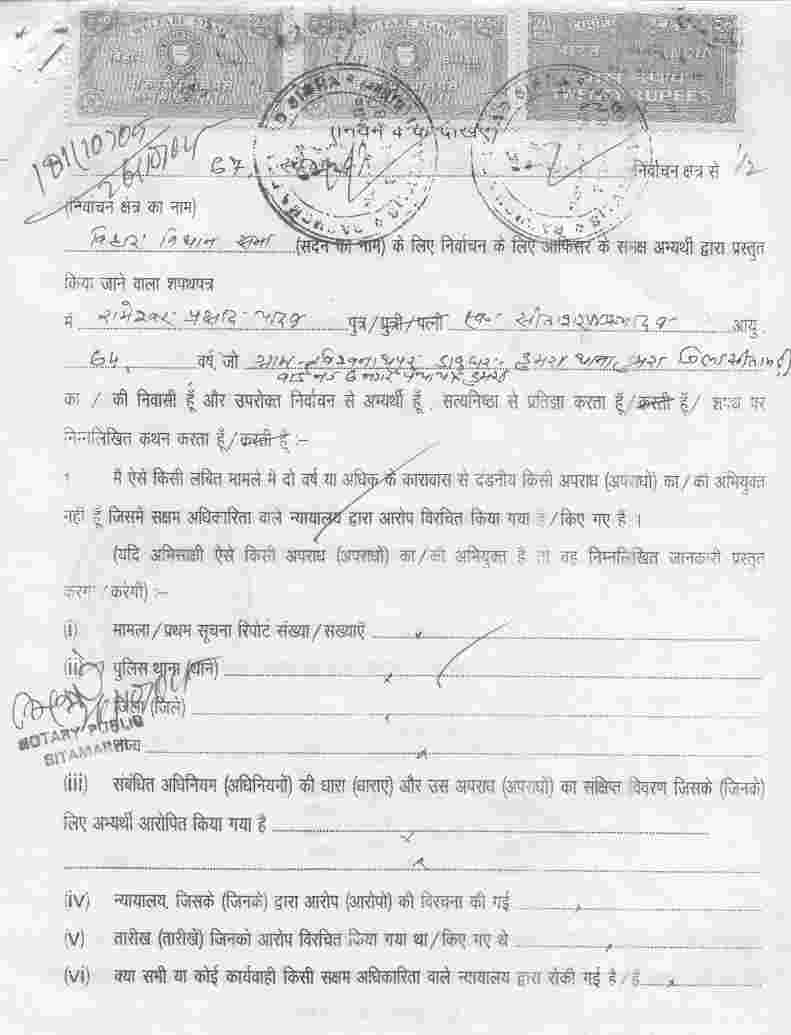 WELFARE STAMP WELFARE STAMP
भारत INDIA
RUPEES
67, निर्वाचन क्षेत्र से 1/2
(निर्वाचन क्षेत्र का नाम)
बिहार विधान सभा (सदन का नाम) के लिए निर्वाचन के लिए आफिसर के समक्ष अभ्यर्थी द्वारा प्रस्तुत
किया जाने वाला शपथपत्र
मैं रामेश्वर प्रसाद यादव पुत्र/पुत्री/पत्नी स्व० आयु
64, वर्ष, जो ग्राम- विश्वनाथपुर डाकघर- डुमरा थाना डुमरा जिला सीतामढ़ी
का / की निवासी हूँ और उपरोक्त निर्वाचन से अभ्यर्थी हूँ, सत्यनिष्ठा से प्रतिज्ञा करता हूँ/करती हूँ/ शपथ पर
निम्नलिखित कथन करता हूँ/करती हूँ :-
1 मैं ऐसे किसी लंबित मामले में दो वर्ष या अधिक के कारावास से दंडनीय किसी अपराध (अपराधों) का/की अभियुक्त
नहीं हूँ जिसमें सक्षम अधिकारिता वाले न्यायालय द्वारा आरोप विरचित किया गया है/किए गए है ।
(यदि अभिसाक्षी ऐसे किसी अपराध (अपराधों) का/की अभियुक्त है तो वह निम्नलिखित जानकारी प्रस्तुत
करेगा / करेगी) :-
(i) मामला/प्रथम सूचना रिपोर्ट संख्या/संख्याएँ
(ii) पुलिस थाना (थाने)
जिला (जिले)
NOTARY PUBLIC
राज्य
SITAMARHI
(iii) संबंधित अधिनियम (अधिनियमों) की धारा (धाराएं) और उस अपराध (अपराधों) का संक्षिप्त विवरण जिसके (जिनके)
लिए अभ्यर्थी आरोपित किया गया है
(iv) न्यायालय, जिसके (जिनके) द्वारा आरोप (आरोपों) की विरचना की गई
(v) तारीख (तारीखें) जिनको आरोप विरचित किया गया था/किए गए थे
(vi) क्या सभी या कोई कार्यवाही किसी सक्षम अधिकारिता वाले न्यायालय द्वारा रोकी गई है/हैं